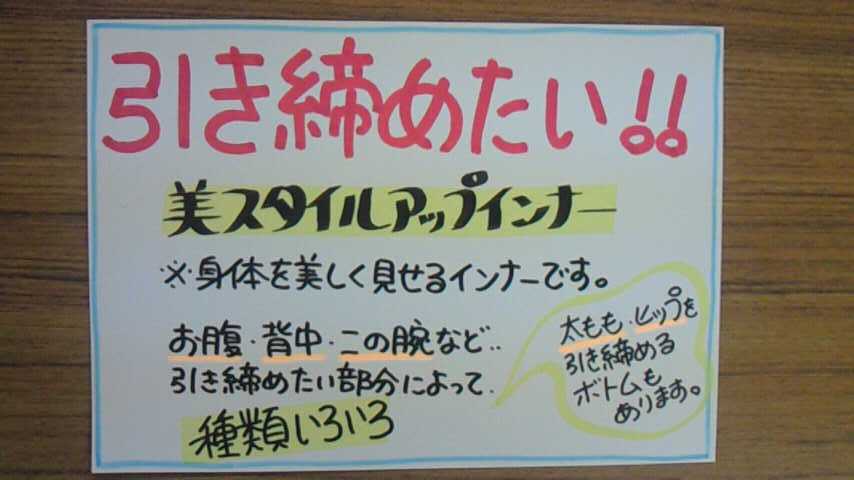 引き締めたい!!
美スタイルアップインナー
※身体を美しく見せるインナーです。
お腹・背中・この腕など..
引き締めたい部分によって
種類いろいろ
太もも・ヒップを
引き締める
ボトムも
あります。